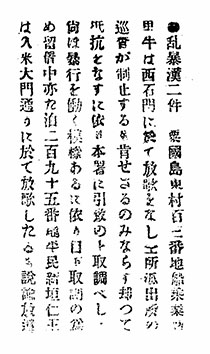 ●乱暴漢二件　粟國島東村百三番地船乗業
里牛は西石門に於て放歌をなし 所派出所の
巡 が制止するも肯せざるのみならす却つて
抵抗となすに依り本署に引致の上取調べし
尚ほ暴行を働く模様あるに依り目下取調の為
め留 中亦た泊二百九十五番地平民新垣仁王
は久米大門通りに於て放歌したるも説諭放還